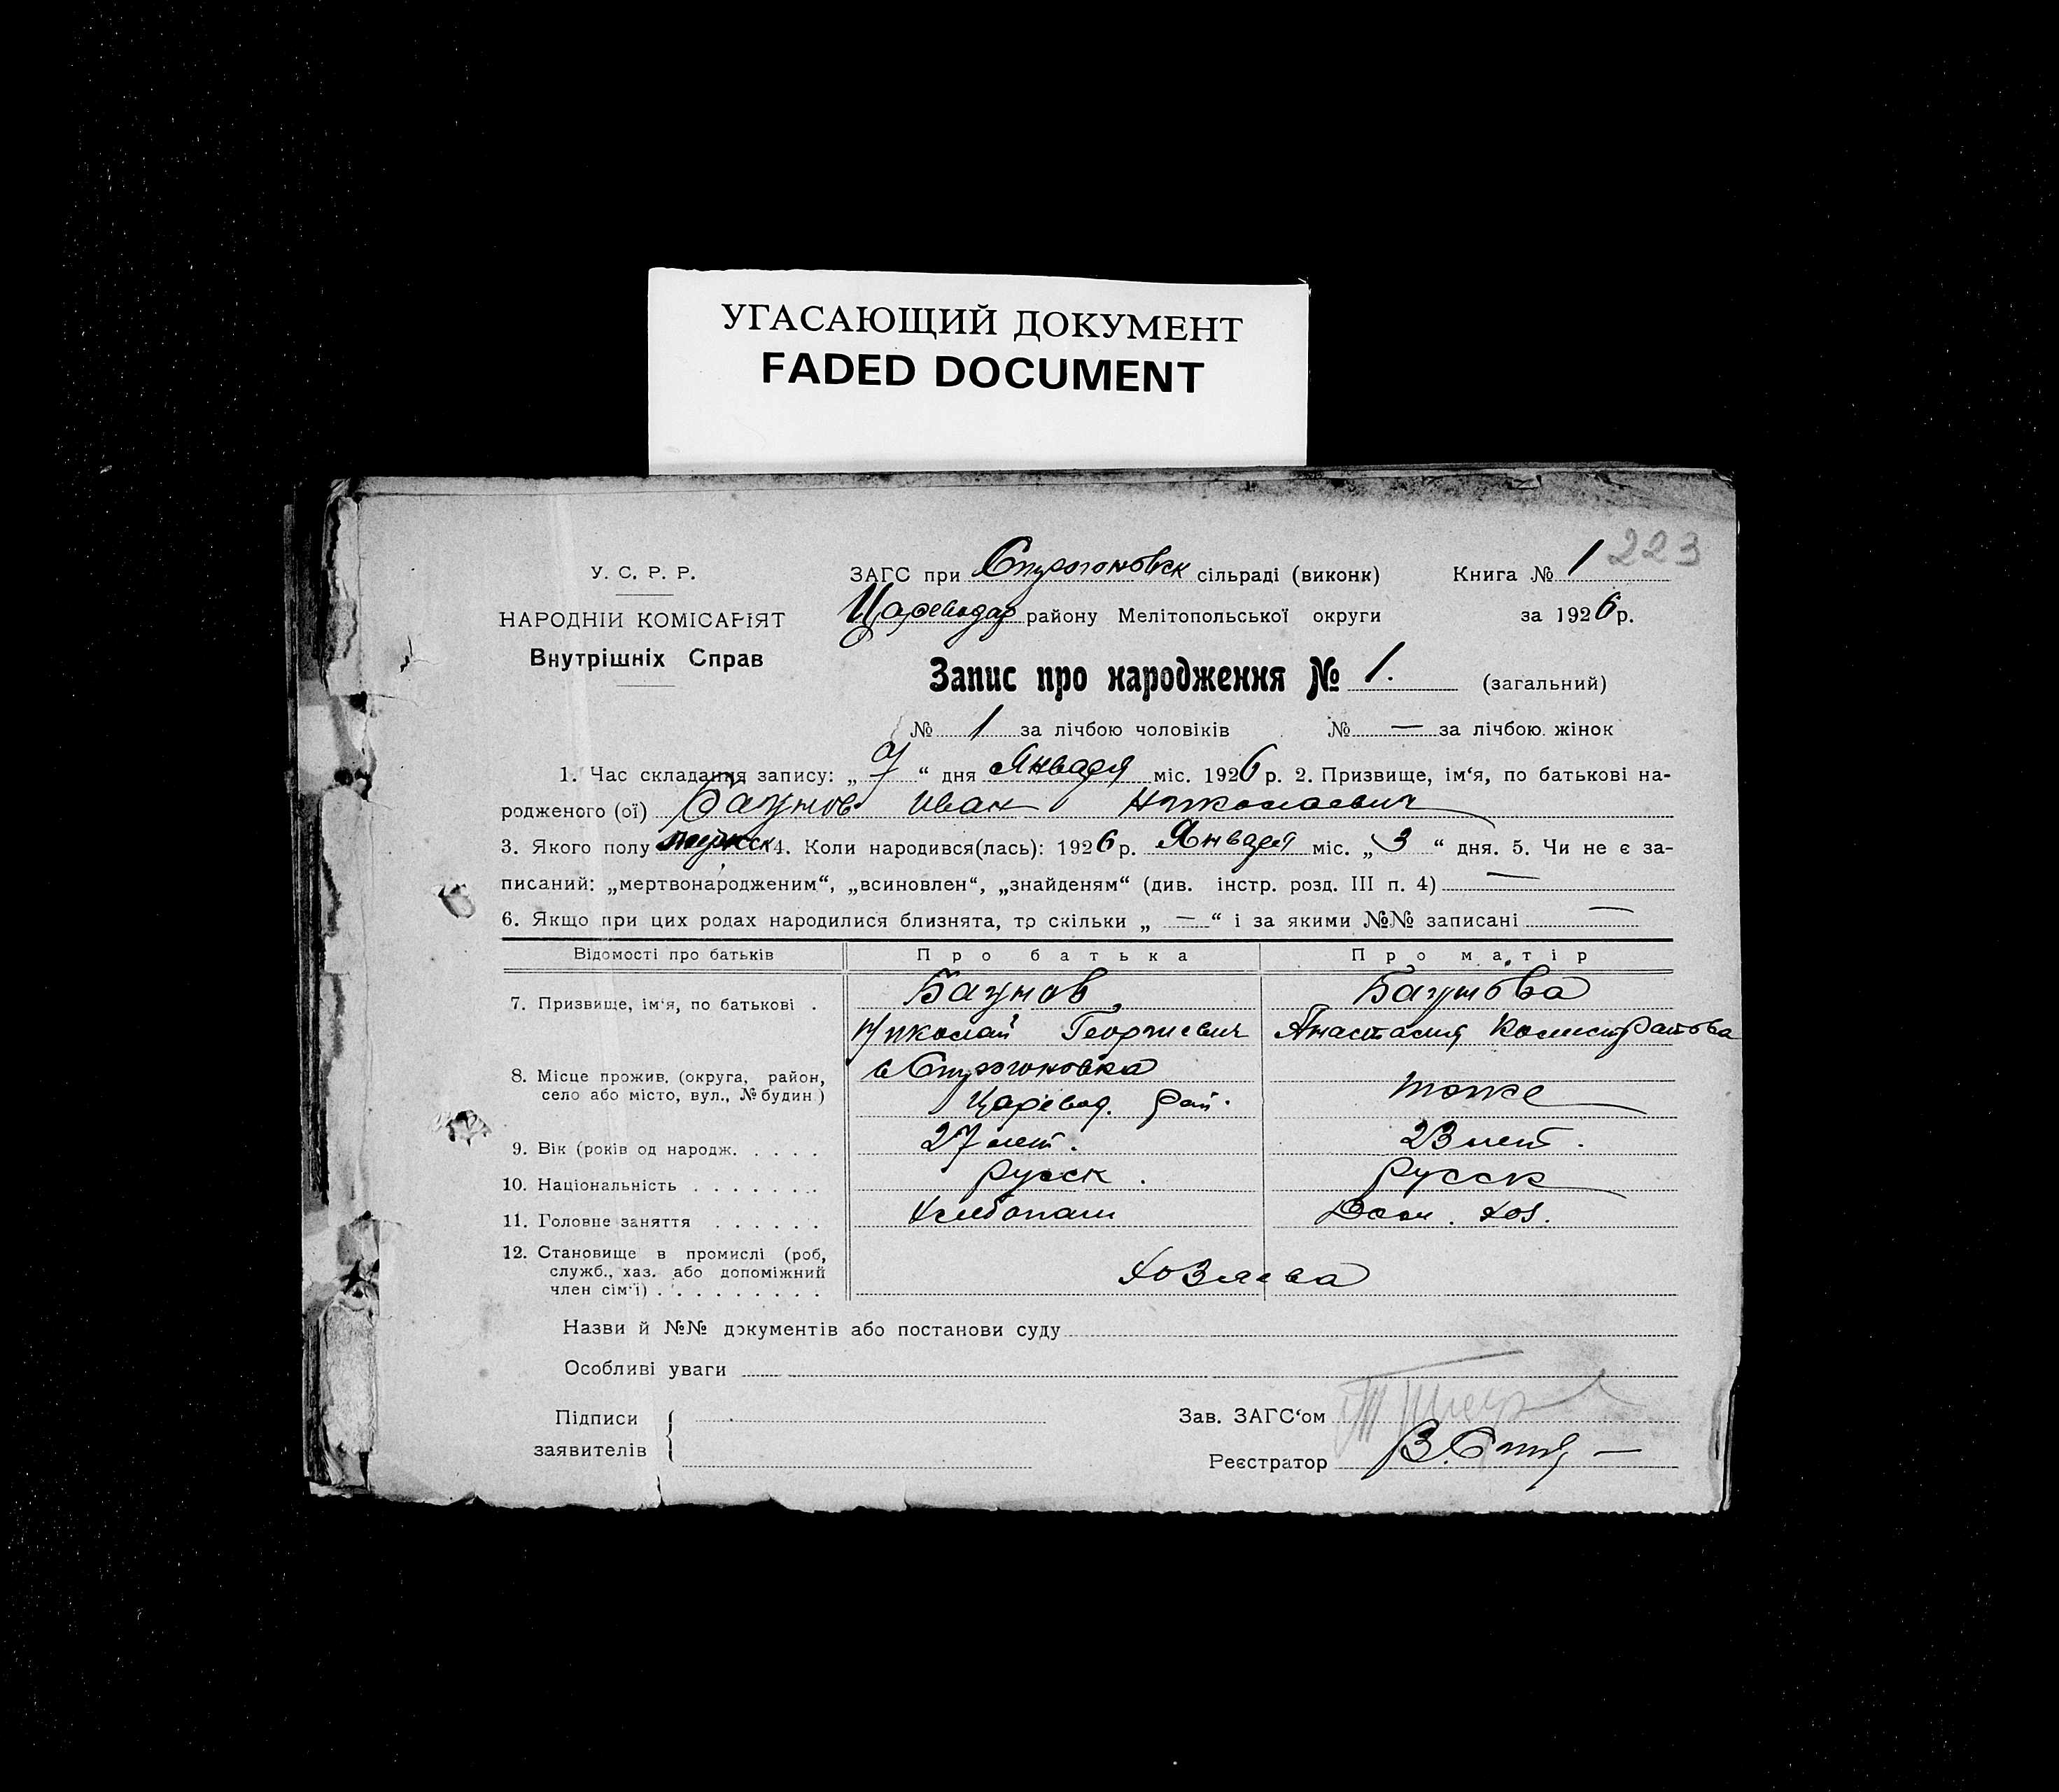 УГАСАЮЩИЙ ДОКУМЕНТ
FADED DOCUMENT
223
У. С. Р. Р.
НАРОДНІЙ КОМІСАРІЯТ
Внутрішніх Справ
ЗАГС при Строгоновск сільраді (виконк) Книга № 1
Цареводар району Мелітопольської округи за 1926 р.
Запис про народження № 1. (загальний)
№ 1 за лічбою чоловіків № — за лічбою жінок
1. Час складання запису: „ 7 “ дня Января міс. 1926 р. 2. Призвище, ім‘я, по батькові на-
родженого (ої) Баунов Иван Николаевич
3. Якого полу мужск 4. Коли народився(лась): 1926 р. Января міс. „ 3 “ дня. 5. Чи не є за-
писаний: „мертвонародженим“, „всиновлен“, „знайденям“ (див. інстр. розд. III п. 4) —
6. Якщо при цих родах народилися близнята, то скільки „ — “ і за якими №№ записані —
Відомості про батьків Про батька Про матір
7. Призвище, ім‘я, по батькові . Баунов Баунова
Николай Георгиевич Анастасия
8. Місце прожив. (округа, район, село або місто, вул., № будин) с Строгоновка
Царевод. рай. тоже
9. Вік (років од народж. . . . . 27 лет. 23 лет.
10. Національність . . . . . . . русск. Русск
11. Головне заняття . . . . . . Хлебопаш Дом. хоз.
12. Становище в промислі (роб,
служб., хаз. або допоміжний
член сім‘ї) . . . . . . . . . хозяева
Назви й №№ документів або постанови суду
Особливі уваги
Підписи
заявителів
Зав. ЗАГС‘ом
Реєстратор В.